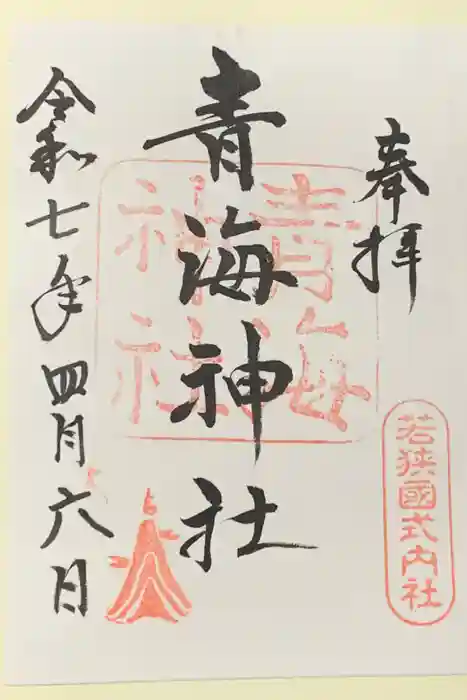 奉拝
若狭國式内社
青海神社
青海
神社
令和七年四月六日